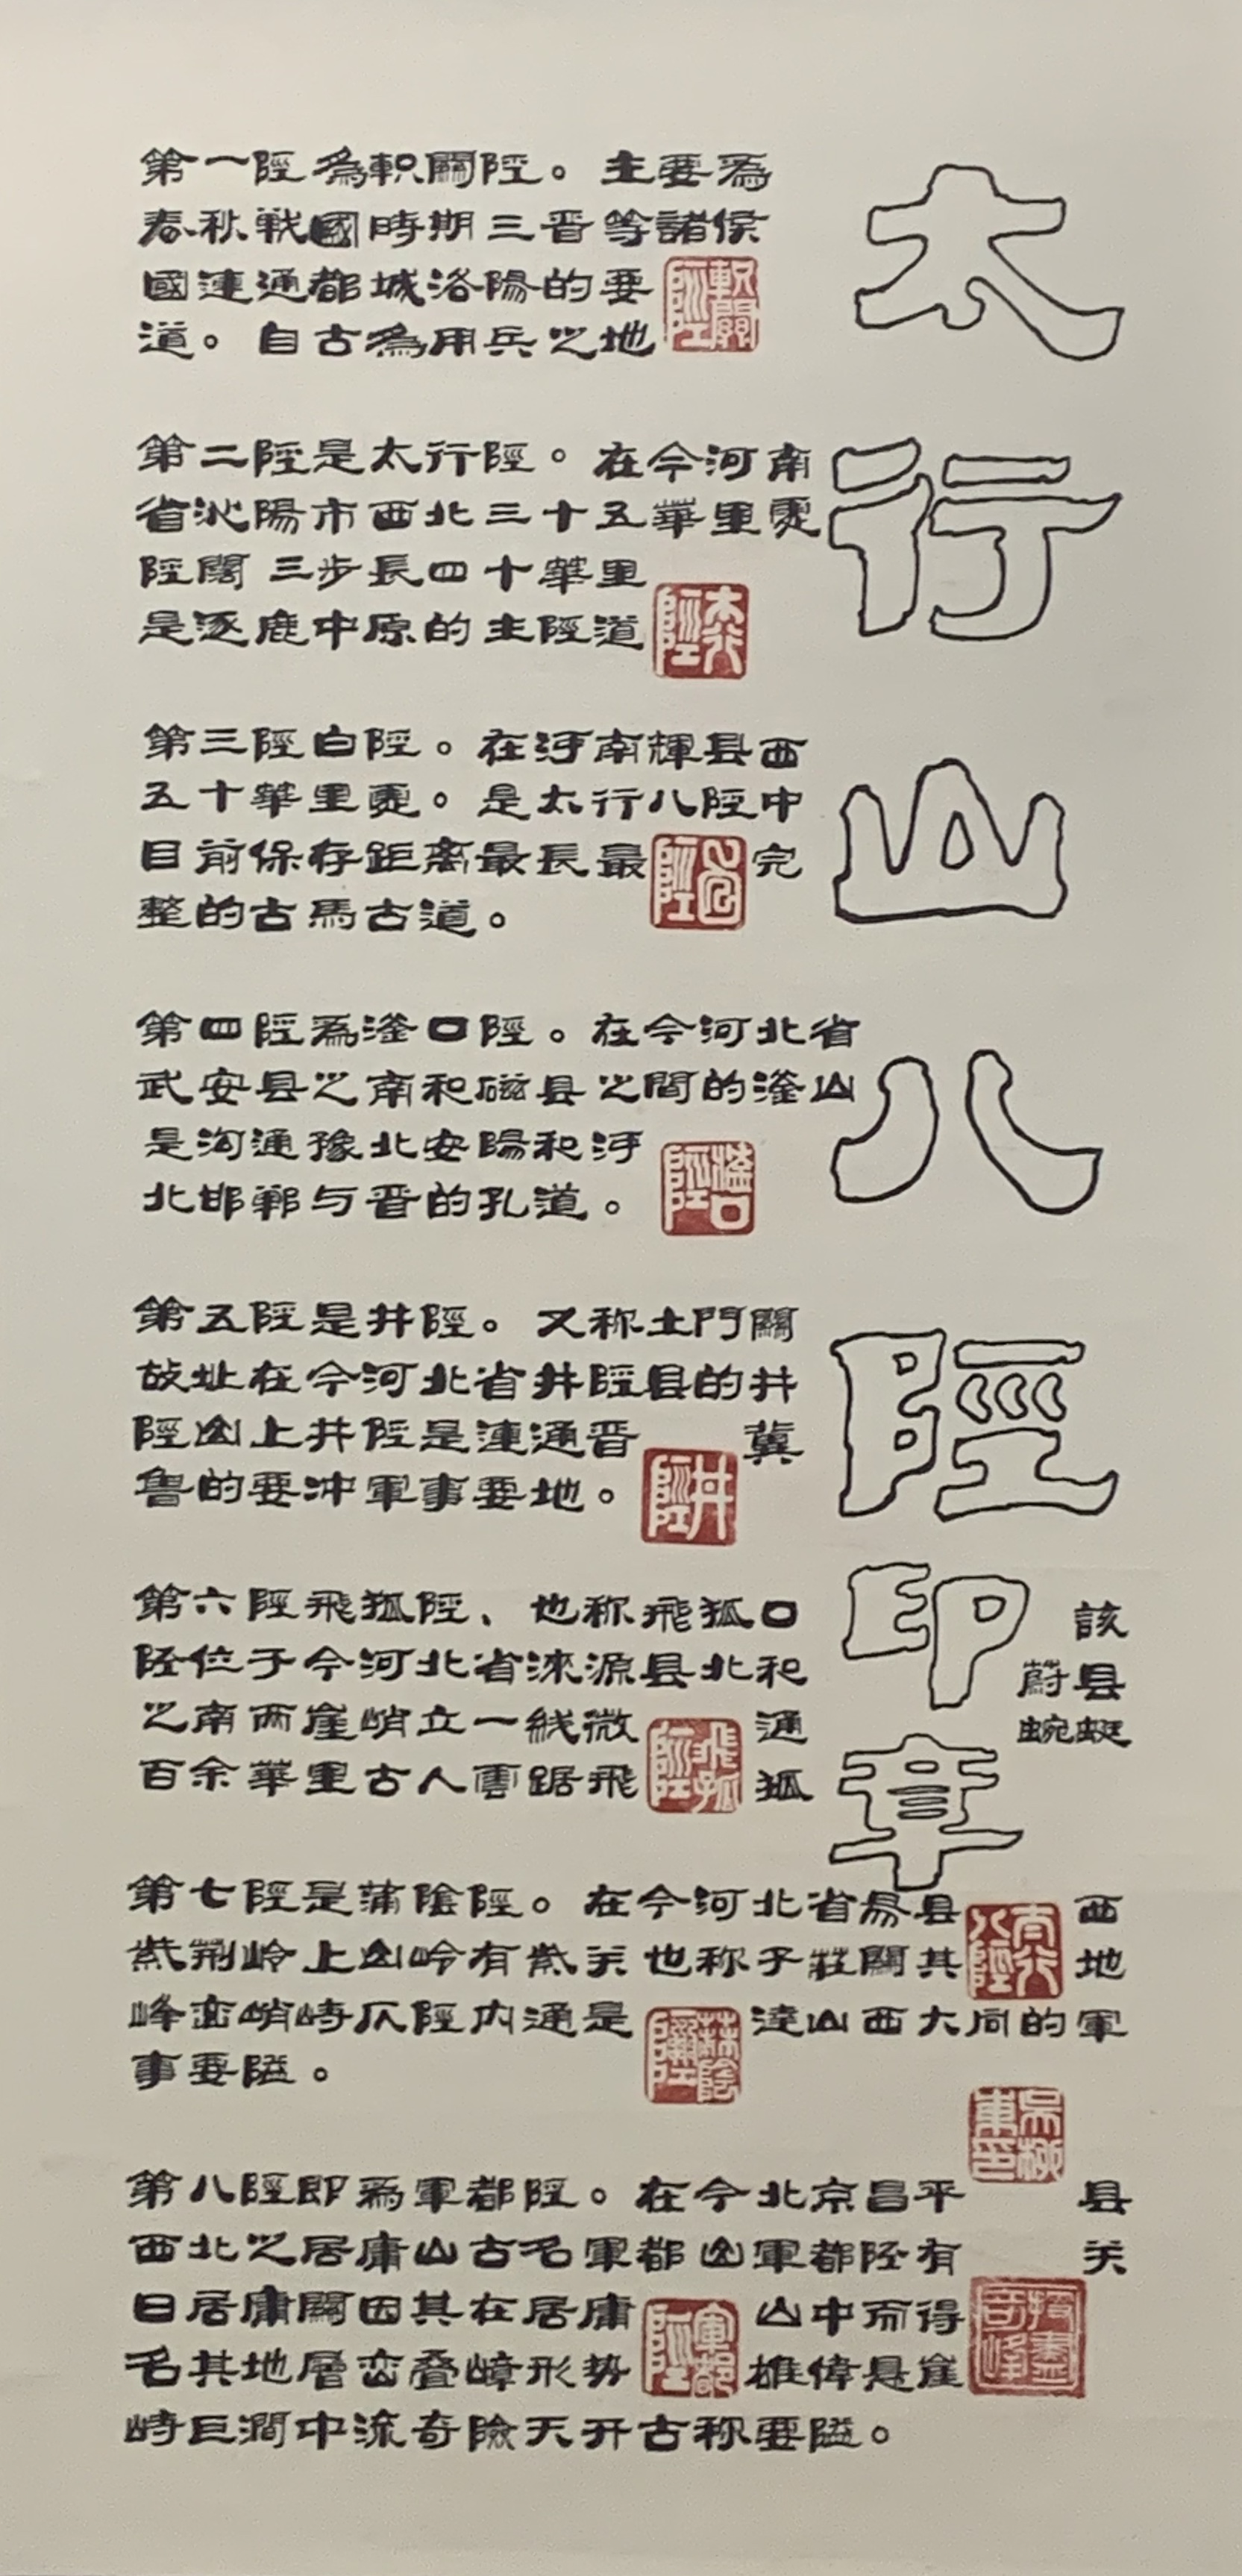 太行山八陘印章
第一陘為軹關陘。主要為
春秋戰國時期三晋等諸侯
國連通都城洛陽的要
道。自古為用兵之地
軹關陘
第二陘是太行陘。在今河南
省沁陽市西北三十五華里處
陘闊三步長四十華里
是逐鹿中原的主陘道
太行陘
第三陘白陘。在河南輝县西
五十華里處。是太行八陘中
目前保存距离最長最完
整的古馬古道。
白陘
第四陘為滏口陘。在今河北省
武安县之南和磁县之間的滏山
是沟通豫北安陽和河
北邯鄲与晋的孔道。
滏口陘
第五陘是井陘。又称土門關
故址在今河北省井陘县的井
陘山上井陘是連通晋冀
魯的要冲軍事要地。
井陘
第六陘飛狐陘、也称飛狐口該
陘位于今河北省涞源县北和蔚县
之南两崖峭立一线微通蜿蜒
百余華里古人雲踞飛狐
飛狐陘
第七陘是蒲陰陘。在今河北省易县西
紫荆岭上山岭有紫关也称子莊關其地
峰峦峭峙仄陘内通是達山西大同的軍
事要隘。
蒲陰陘
太行八陘
第八陘即為軍都陘。在今北京昌平县
西北之居庸山古名軍都山軍都陘有关
曰居庸關因其在居庸山中而得
名其地層峦叠嶂形势雄偉悬崖
峙巨澗中流奇險天开古称要隘。
軍都陘